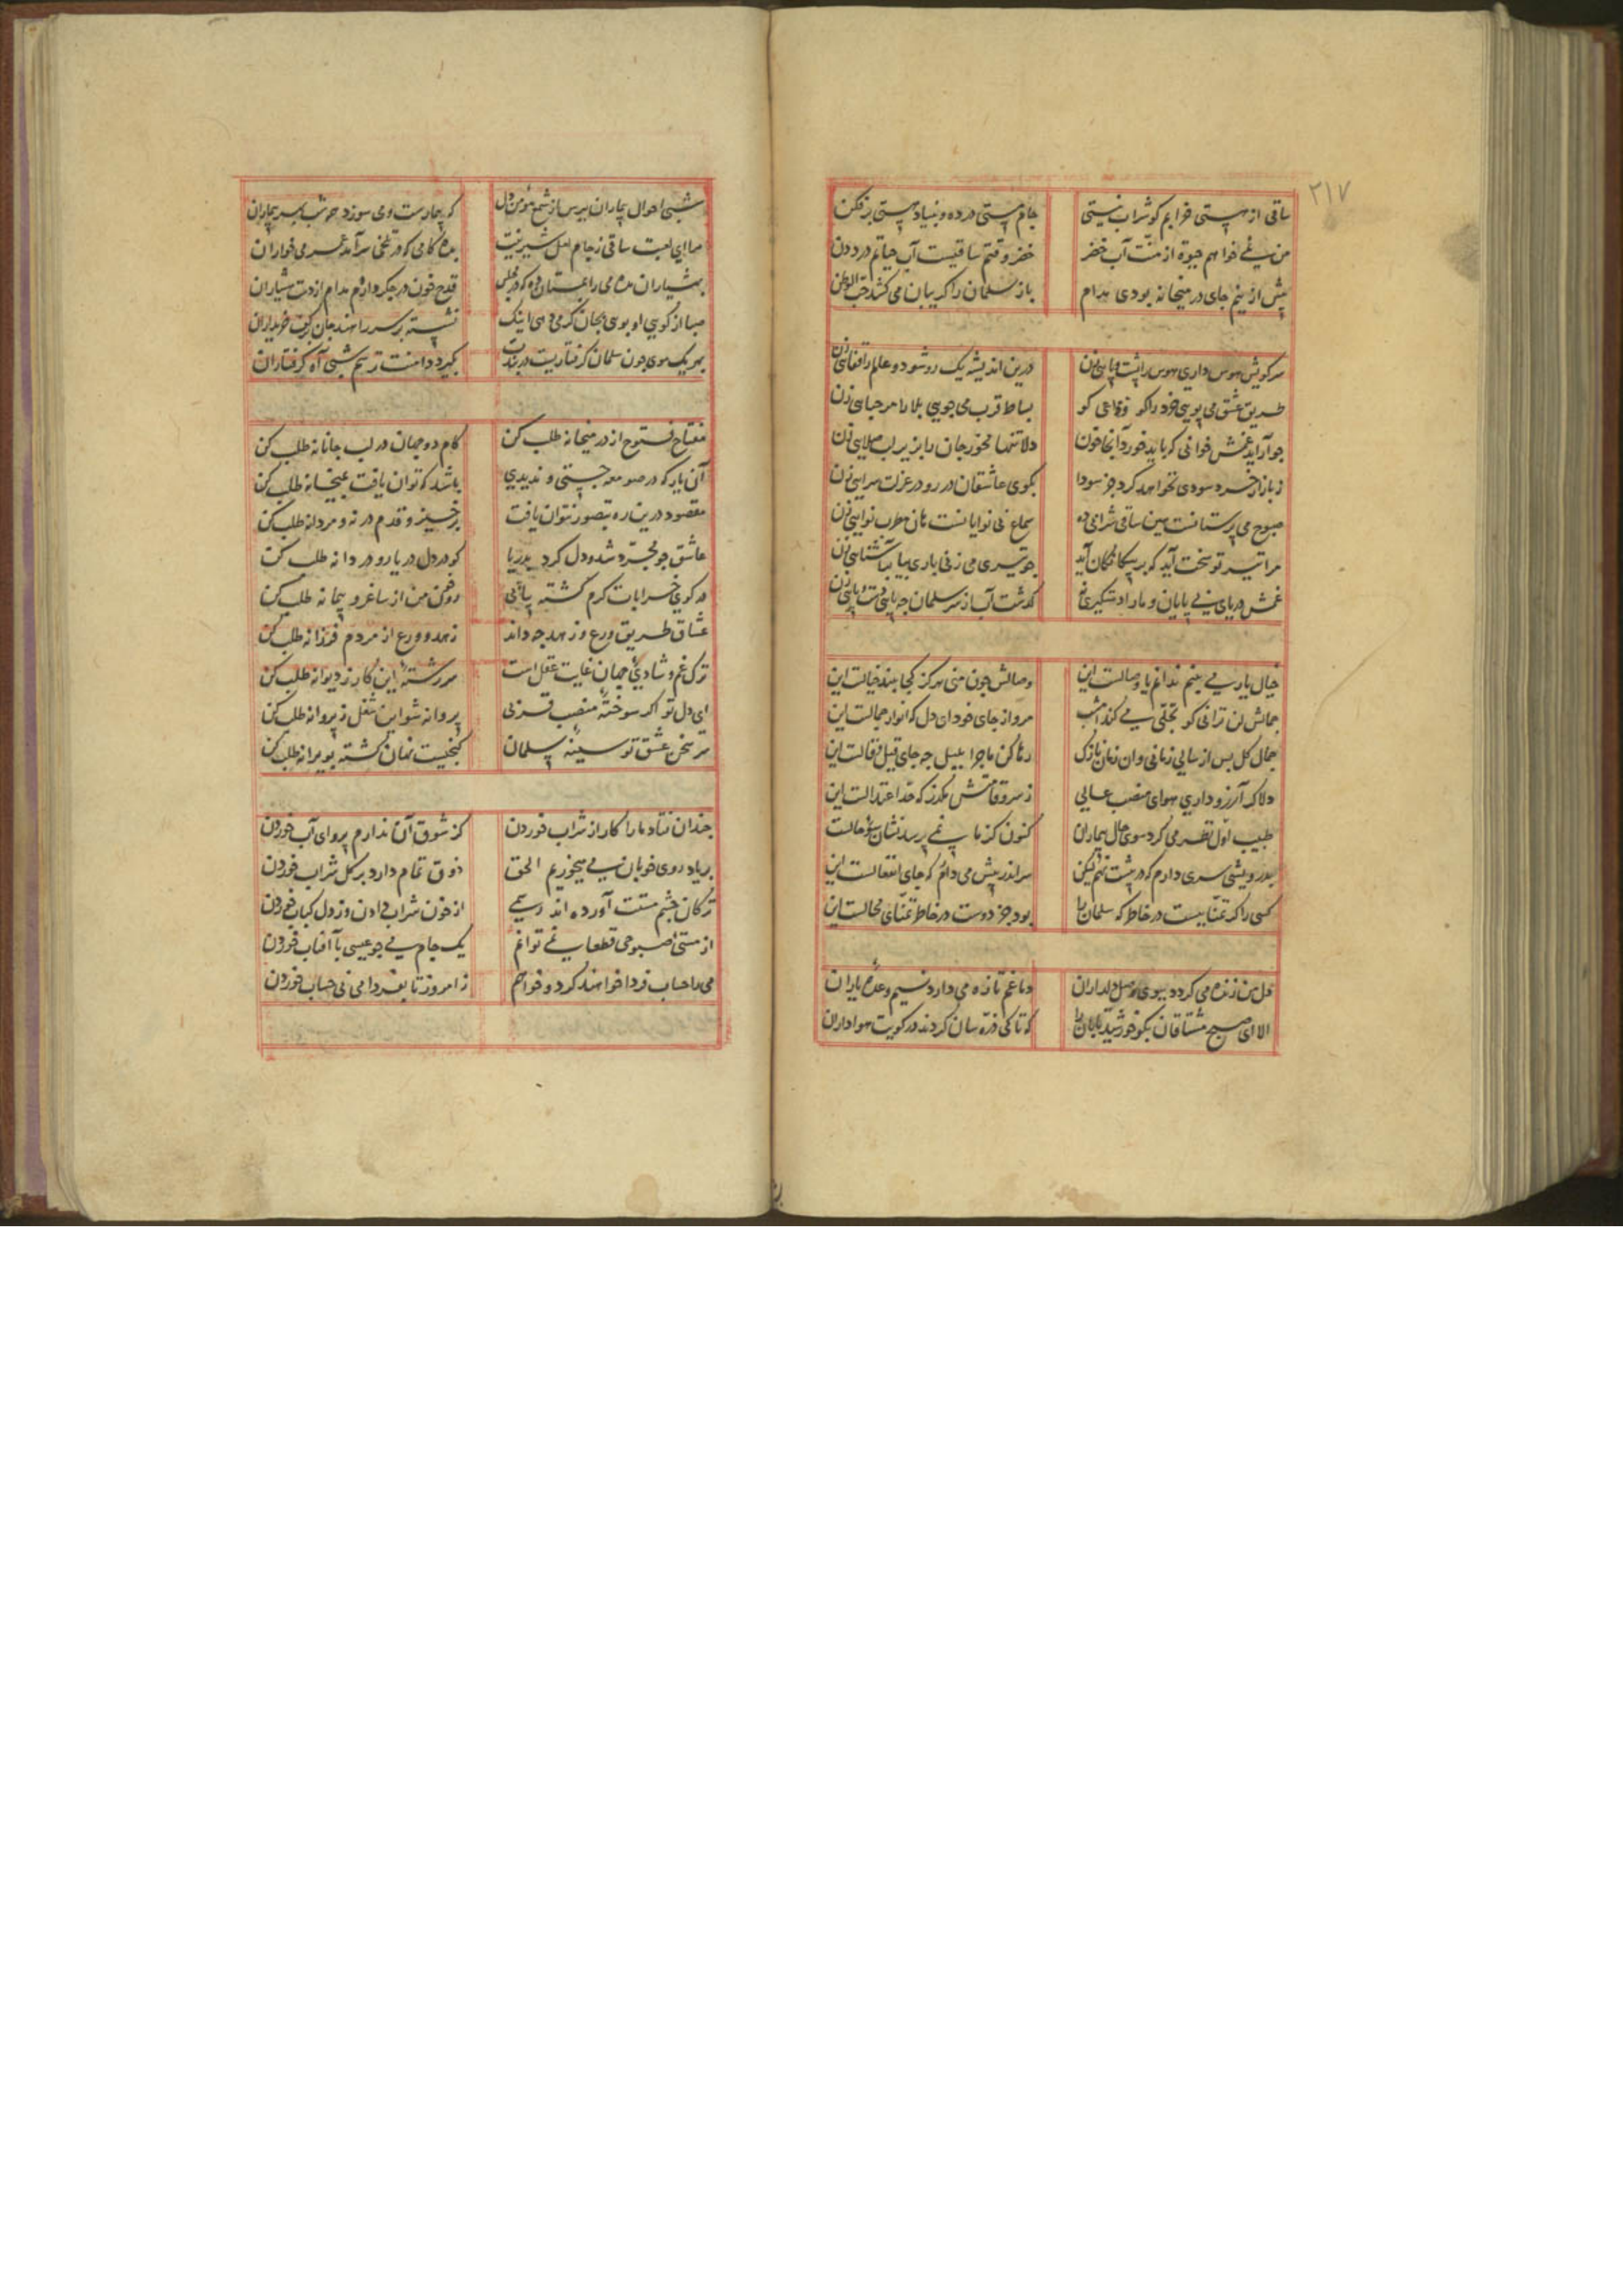 ۲۱۷
ساقی از هستی خرابم کو شراب نیستی جام مستی در ده و بنیاد هستی برفکن
من نمی‌خواهم حیوة از منت آب خضر خضر وقتم ساقیست آب حیاتم درد دن
پیش ازینم جای در میخانه بودی مدام باز سلمان را گریبان می کشد حب الوطن
سر کویش هوس داری هوس را پشت پایی زن درین اندیشه یک رو شو دو عالم را قفایی زن
طریق عشق می پویی خرد را کو وداعی کو بساط قرب می جویی بلا را مرحبایی زن
چو آراید غمش خوانی که باید خورد آنجا خون دلا تنها مخور جان را بزیر لب صلایی زن
ز بازار خرد سودی نخواهد کرد جز سودا بکوی عاشقان در رو در عزلت سرایی زن
صبوح می پرستانست هین ساقی شرابی ده سماع بی نوایانست هان مطرب نوایی زن
مرا تیر تو سخت آید که بر بیگانگان آید چو تیری می زنی باری بیا بر آشنایی زن
غمش دریای بی پایان و ما را دستگیری نه گذشت آب از سر سلمان چه پایی دست و پایی زن
خیال یار می بینم ندانم یا وصالست این وصالش چون منی هرگز کجا بیند خیالست این
جمالش لن ترانی گو تجلی می کند امشب مرو از جای خود ای دل که انوار جمالست این
جمال گل پس از سالی زمانی وان زمان نازک رها کن ماجرا بلبل چه جای قیل و قالست این
دلا گر آرزو داری هوای منصب عالی ز سرو قامتش مگذر که حد اعتدالست این
طبیب اول نظر می کرد سوی حال بیماران کنون کز ما نمی پرسد نشان سوء حالست
بدرویشی سری دارم که در پیشت نهم لیکن سر اندر پیش می دارم که جای انفعالست این
کسی را گر تمناییست در خاطر که سلمان را بود جز دوست در خاطر تمنای محالست این
دل من زنده می گردد ببوی وصل دلداران دماغم تازه می دارد نسیم وعده یاران
الا ای صبح مشتاقان بگو خورشید تابان را که تا کی ذره سان گردند در کویت هواداران
شبی احوال بیماران بپرس از شمع مومن دل که بیمارست و می سوزد چو شب بر سر بیماران
مدامی که در تلخی سر آمد عمر می خواران
نشسته بر سر راهند جان بر کف خریداران
بهر یک موی چون سلمان گرفتاریست در بندت بگیرد دامنت ترسم شبی آه گرفتاران
مفتاح فتوح از در میخانه طلب کن کام دو جهان در لب جانانه طلب کن
آن یار که در صومعه جستی و ندیدی باشد که توان یافت بمیخانه طلب کن
مقصود درین ره بتصور نتوان یافت برخیز و قدم در نه و مردانه طلب کن
عاشق چو مجرد شد و دل کرد بدریا گو در دل دریا رو و دردانه طلب کن
در کوی خرابات گرم کشته بیابی رو خون من از ساغر و پیمانه طلب کن
عشاق طریق ورع و زهد چه دانند زهد و ورع از مردم فرزانه طلب کن
ترک غم و شادی جهان غایت عقل است سررشته این کار ز دیوانه طلب کن
ای دل تو اگر سوخته منصب قربی پروانه شو این شغل ز پروانه طلب کن
شد مخزن عشق تو سینه سلمان گنجیست نهان گشته بویرانه طلب کن
چندان فتاد ما را کار از شراب خوردن کز شوق آن ندارم پروای آب خوردن
بر یاد روی خوبان می میخوریم الحق ذوق تمام دارد بر گل شراب خوردن
ترکان چشم مستت آورده اند رسمی از خون شراب دادن وز دل کباب خوردن
از مستی صبوحی قطعا نمی توانم یک جام می چو عیسی با آفتاب خوردن
می را حساب فردا خواهند کرد و خواهم ز امروز تا بفردا می بی حساب خوردن